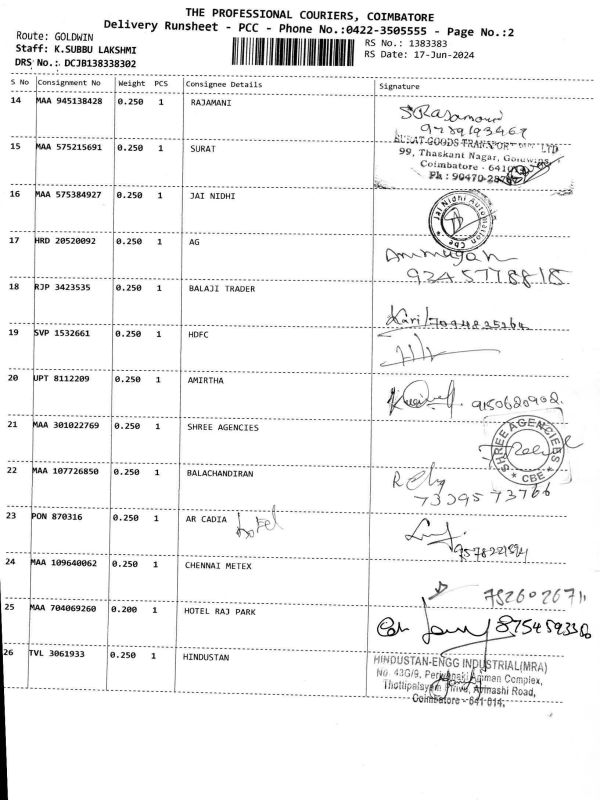 THE PROFESSIONAL COURIERS, COIMBATORE
Delivery Runsheet - PCC - Phone No.:0422-3505555 - Page No.:2
Route: GOLDWIN
RS No.: 1383383
Staff: K.SUBBU LAKSHMI
RS Date: 17-Jun-2024
DRS No.: DCJB138338302
S No Consignment No Weight PCS Consignee Details Signature
14 MAA 945138428 0.250 1 RAJAMANI
15 MAA 575215691 0.250 1 SURAT
SURAT GOODS TRANSPORT LTD
99, Thaskani Nagar, Goldwins
Coimbatore - 6410
Ph : 90470-
16 MAA 575384927 0.250 1 JAI NIDHI
Jai Nidhi Automation Cbe
17 HRD 20520092 0.250 1 AG
Arumugam
18 RJP 3423535 0.250 1 BALAJI TRADER
19 SVP 1532661 0.250 1 HDFC
20 UPT 8112209 0.250 1 AMIRTHA
9150620902
21 MAA 301022769 0.250 1 SHREE AGENCIES
SHREE AGENCIEES
CBE
22 MAA 107726850 0.250 1 BALACHANDIRAN
7339573766
23 PON 870316 0.250 1 AR CADIA Hotel
24 MAA 109640062 0.250 1 CHENNAI METEX
7526026711
25 MAA 704069260 0.200 1 HOTEL RAJ PARK
26 TVL 3061933 0.250 1 HINDUSTAN
HINDUSTAN-ENGG INDUSTRIAL(MRA)
No. 43G/9, Amman Complex,
Thottipalayam Pirivu, Avinashi Road,
Coimbatore - 641 014.